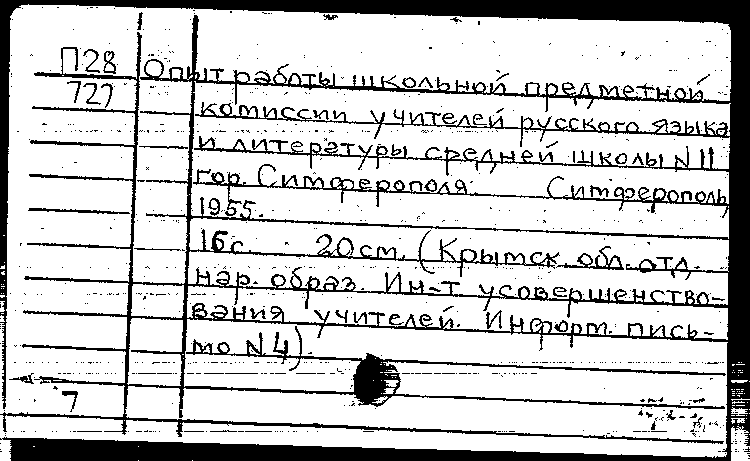 П28 Опыт работы школьной предметной
727 комиссии учителей русского языка
и литературы средней школы N 11
гор. Симферополя. Симферополь,
1955.
16 с. 20 см. (Крымск. обл. отд.
нар. образ. Ин-т усовершенство-
вания учителей. Информ. пись-
мо N 4).
7